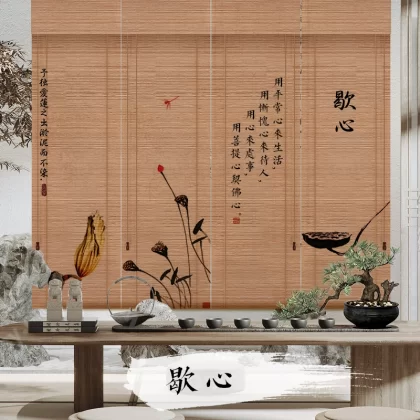 歇心
用平常心來生活，
用慚愧心來待人，
用心來處事，
用菩提心契佛心。
予独愛蓮之出淤泥而不染，
歇心